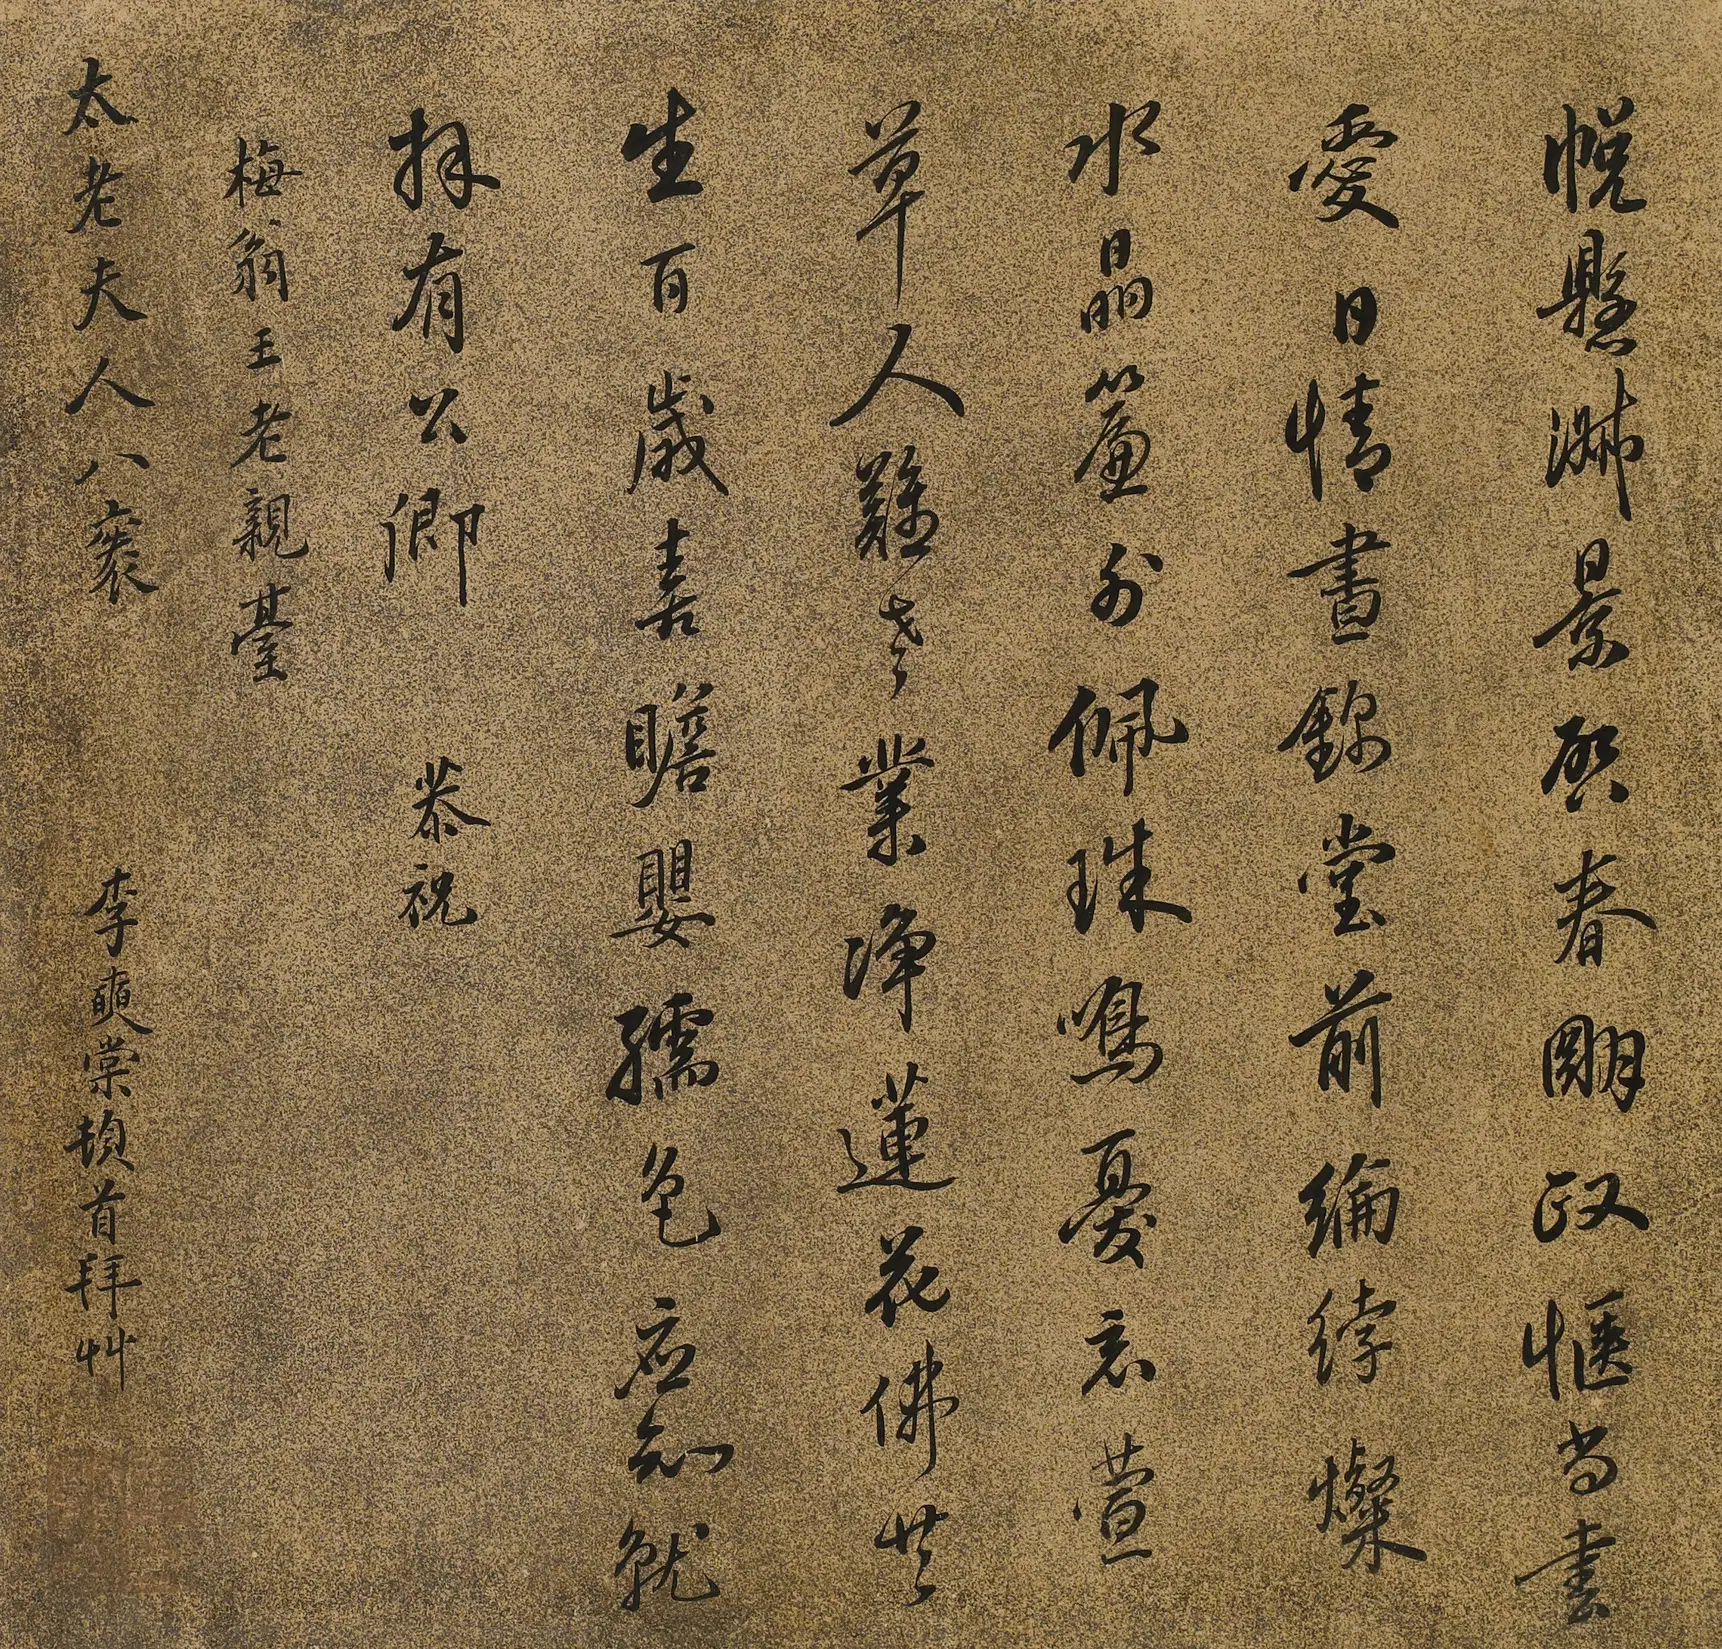 帨懸淑景啓春朙政愜尚書
愛日情晝錦堂前綸綍燦
水晶簾外佩珠鳴憂忘萱
草人難老業淨蓮花佛共
生百歲喜瞻嬰孺色應知就
拜有公卿 恭祝
梅翁王老親臺
太老夫人八袠 李奭棠頓首拜艸